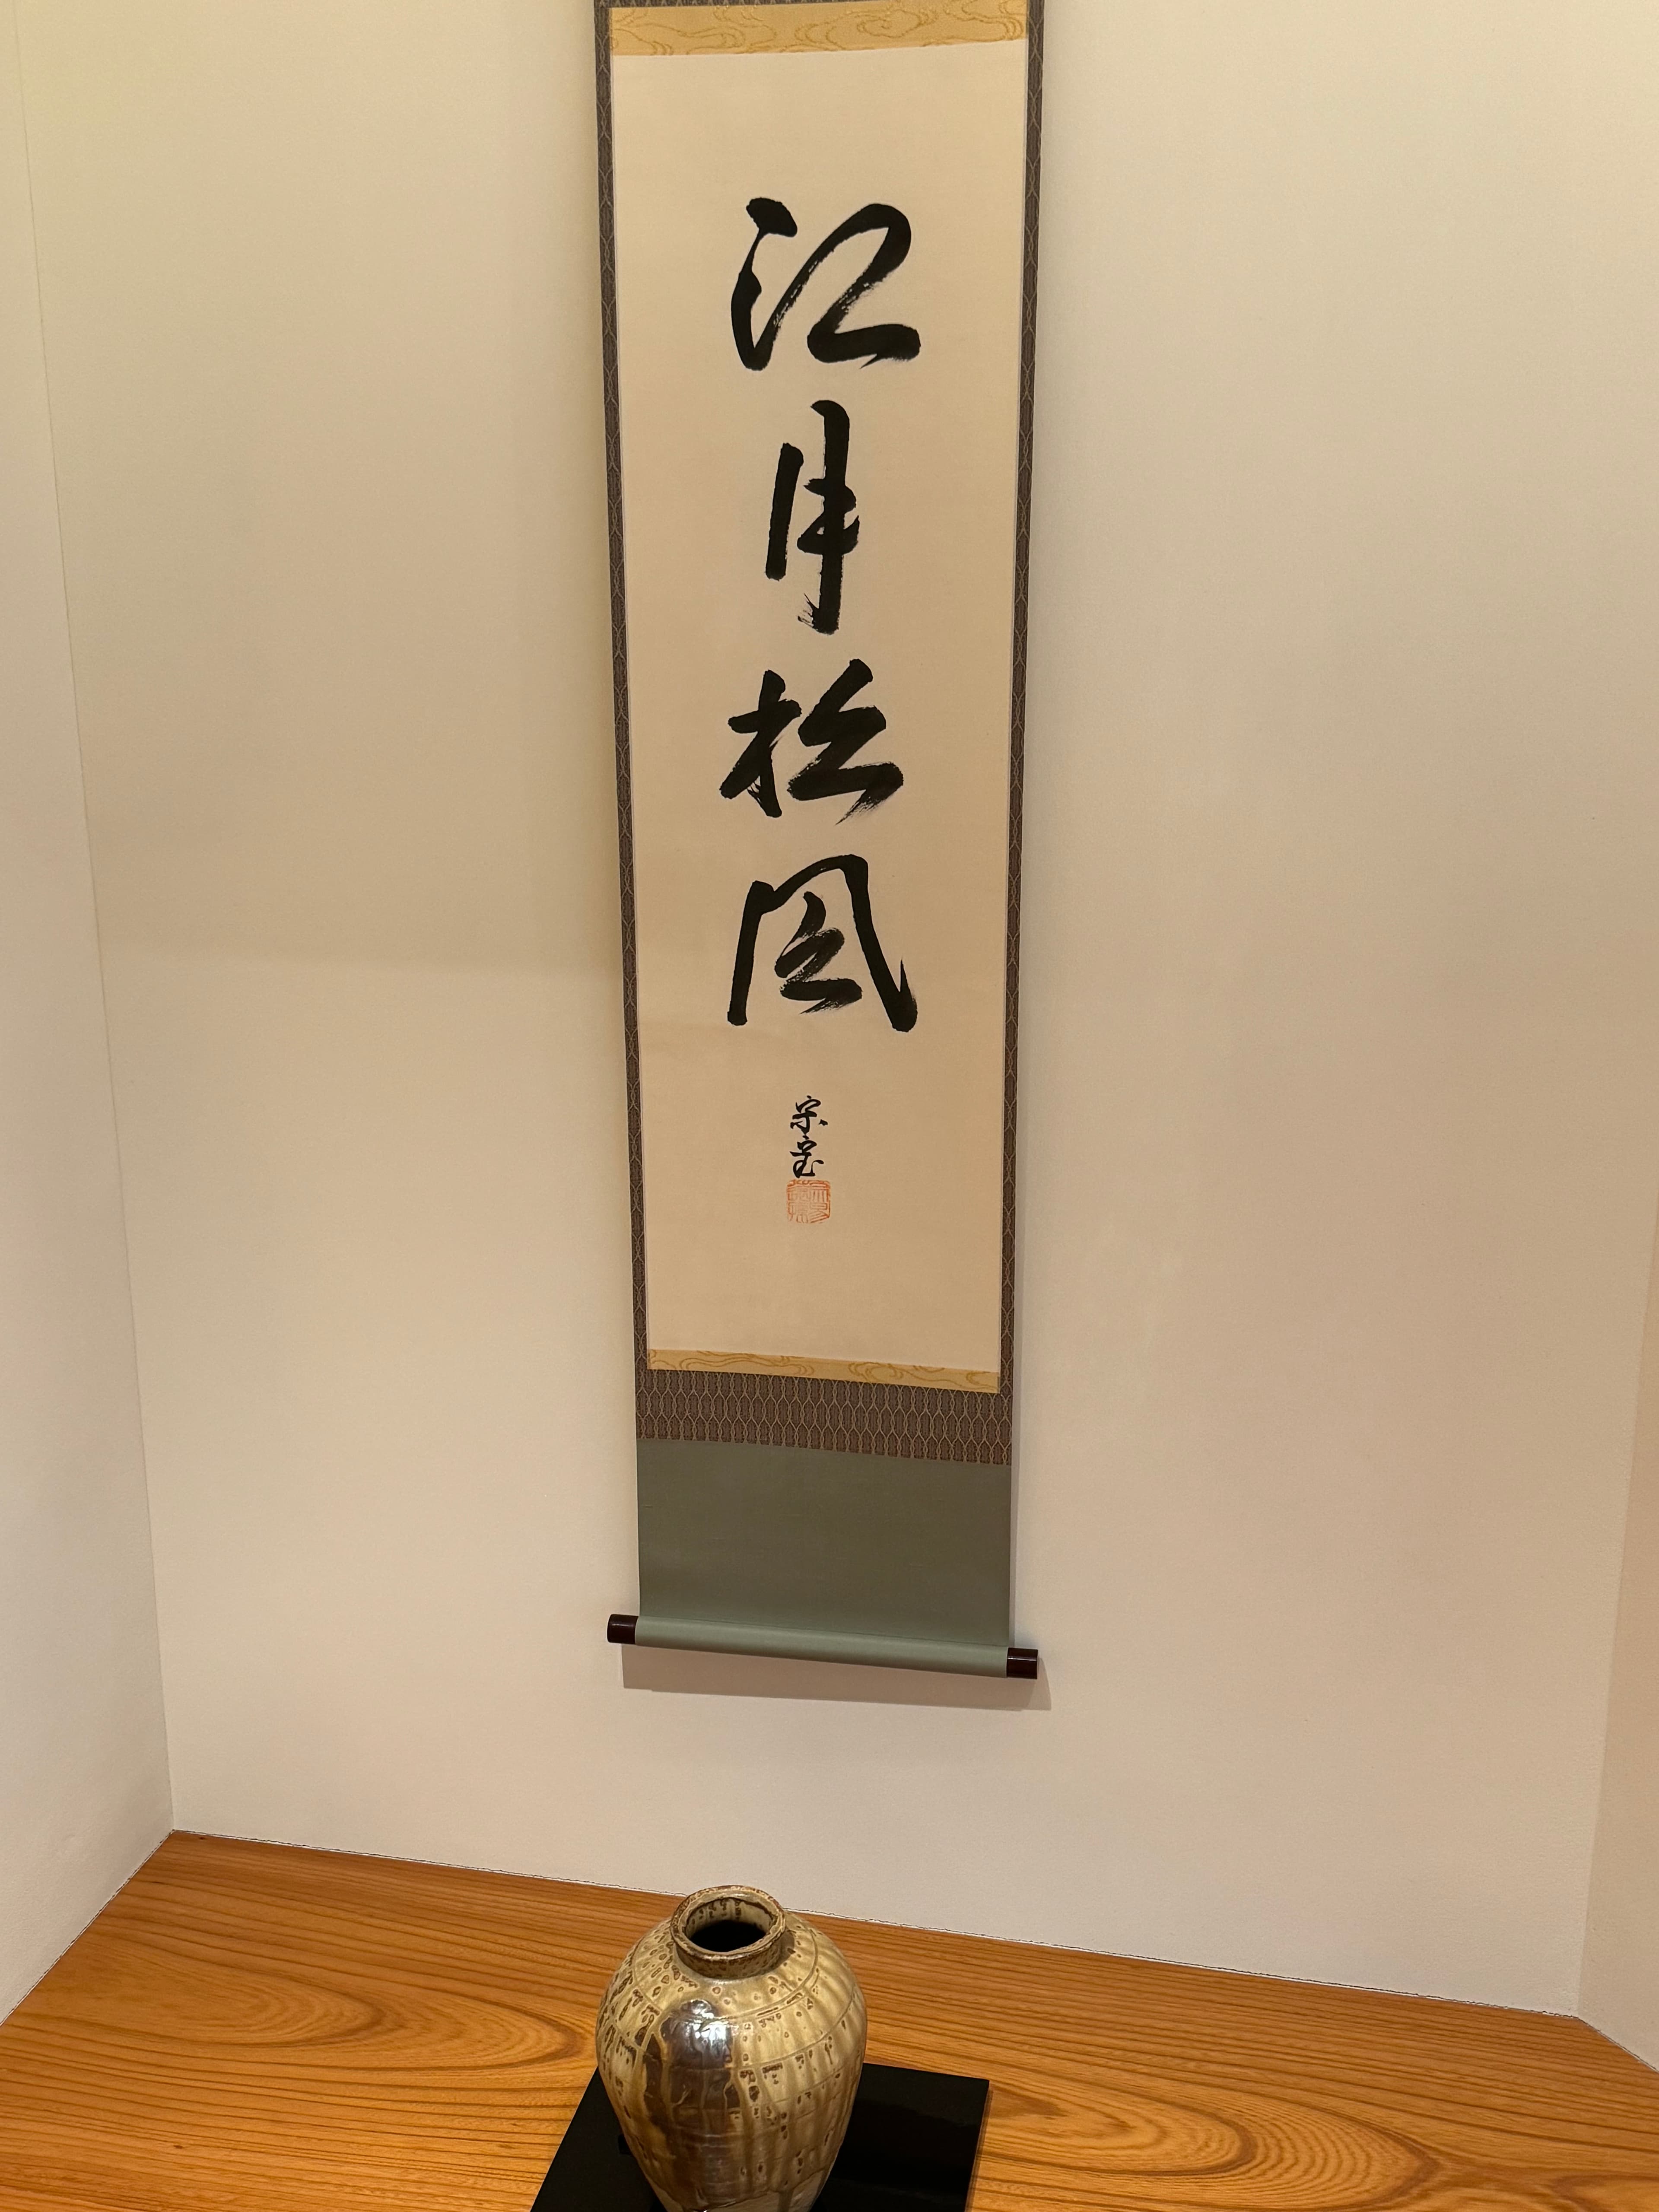 江月松風
宗宝